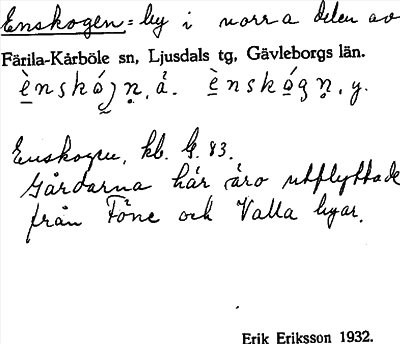 Enskogen = by i norra delen av
Färila-Kårböle sn, Ljusdals tg, Gävleborgs län.
ènskógn, ä. ènskógn, y.
Enskogen, kb. G. 83.
Gårdarna här äro utflyttade
från Föne och Valla byar.
Erik Eriksson 1932.